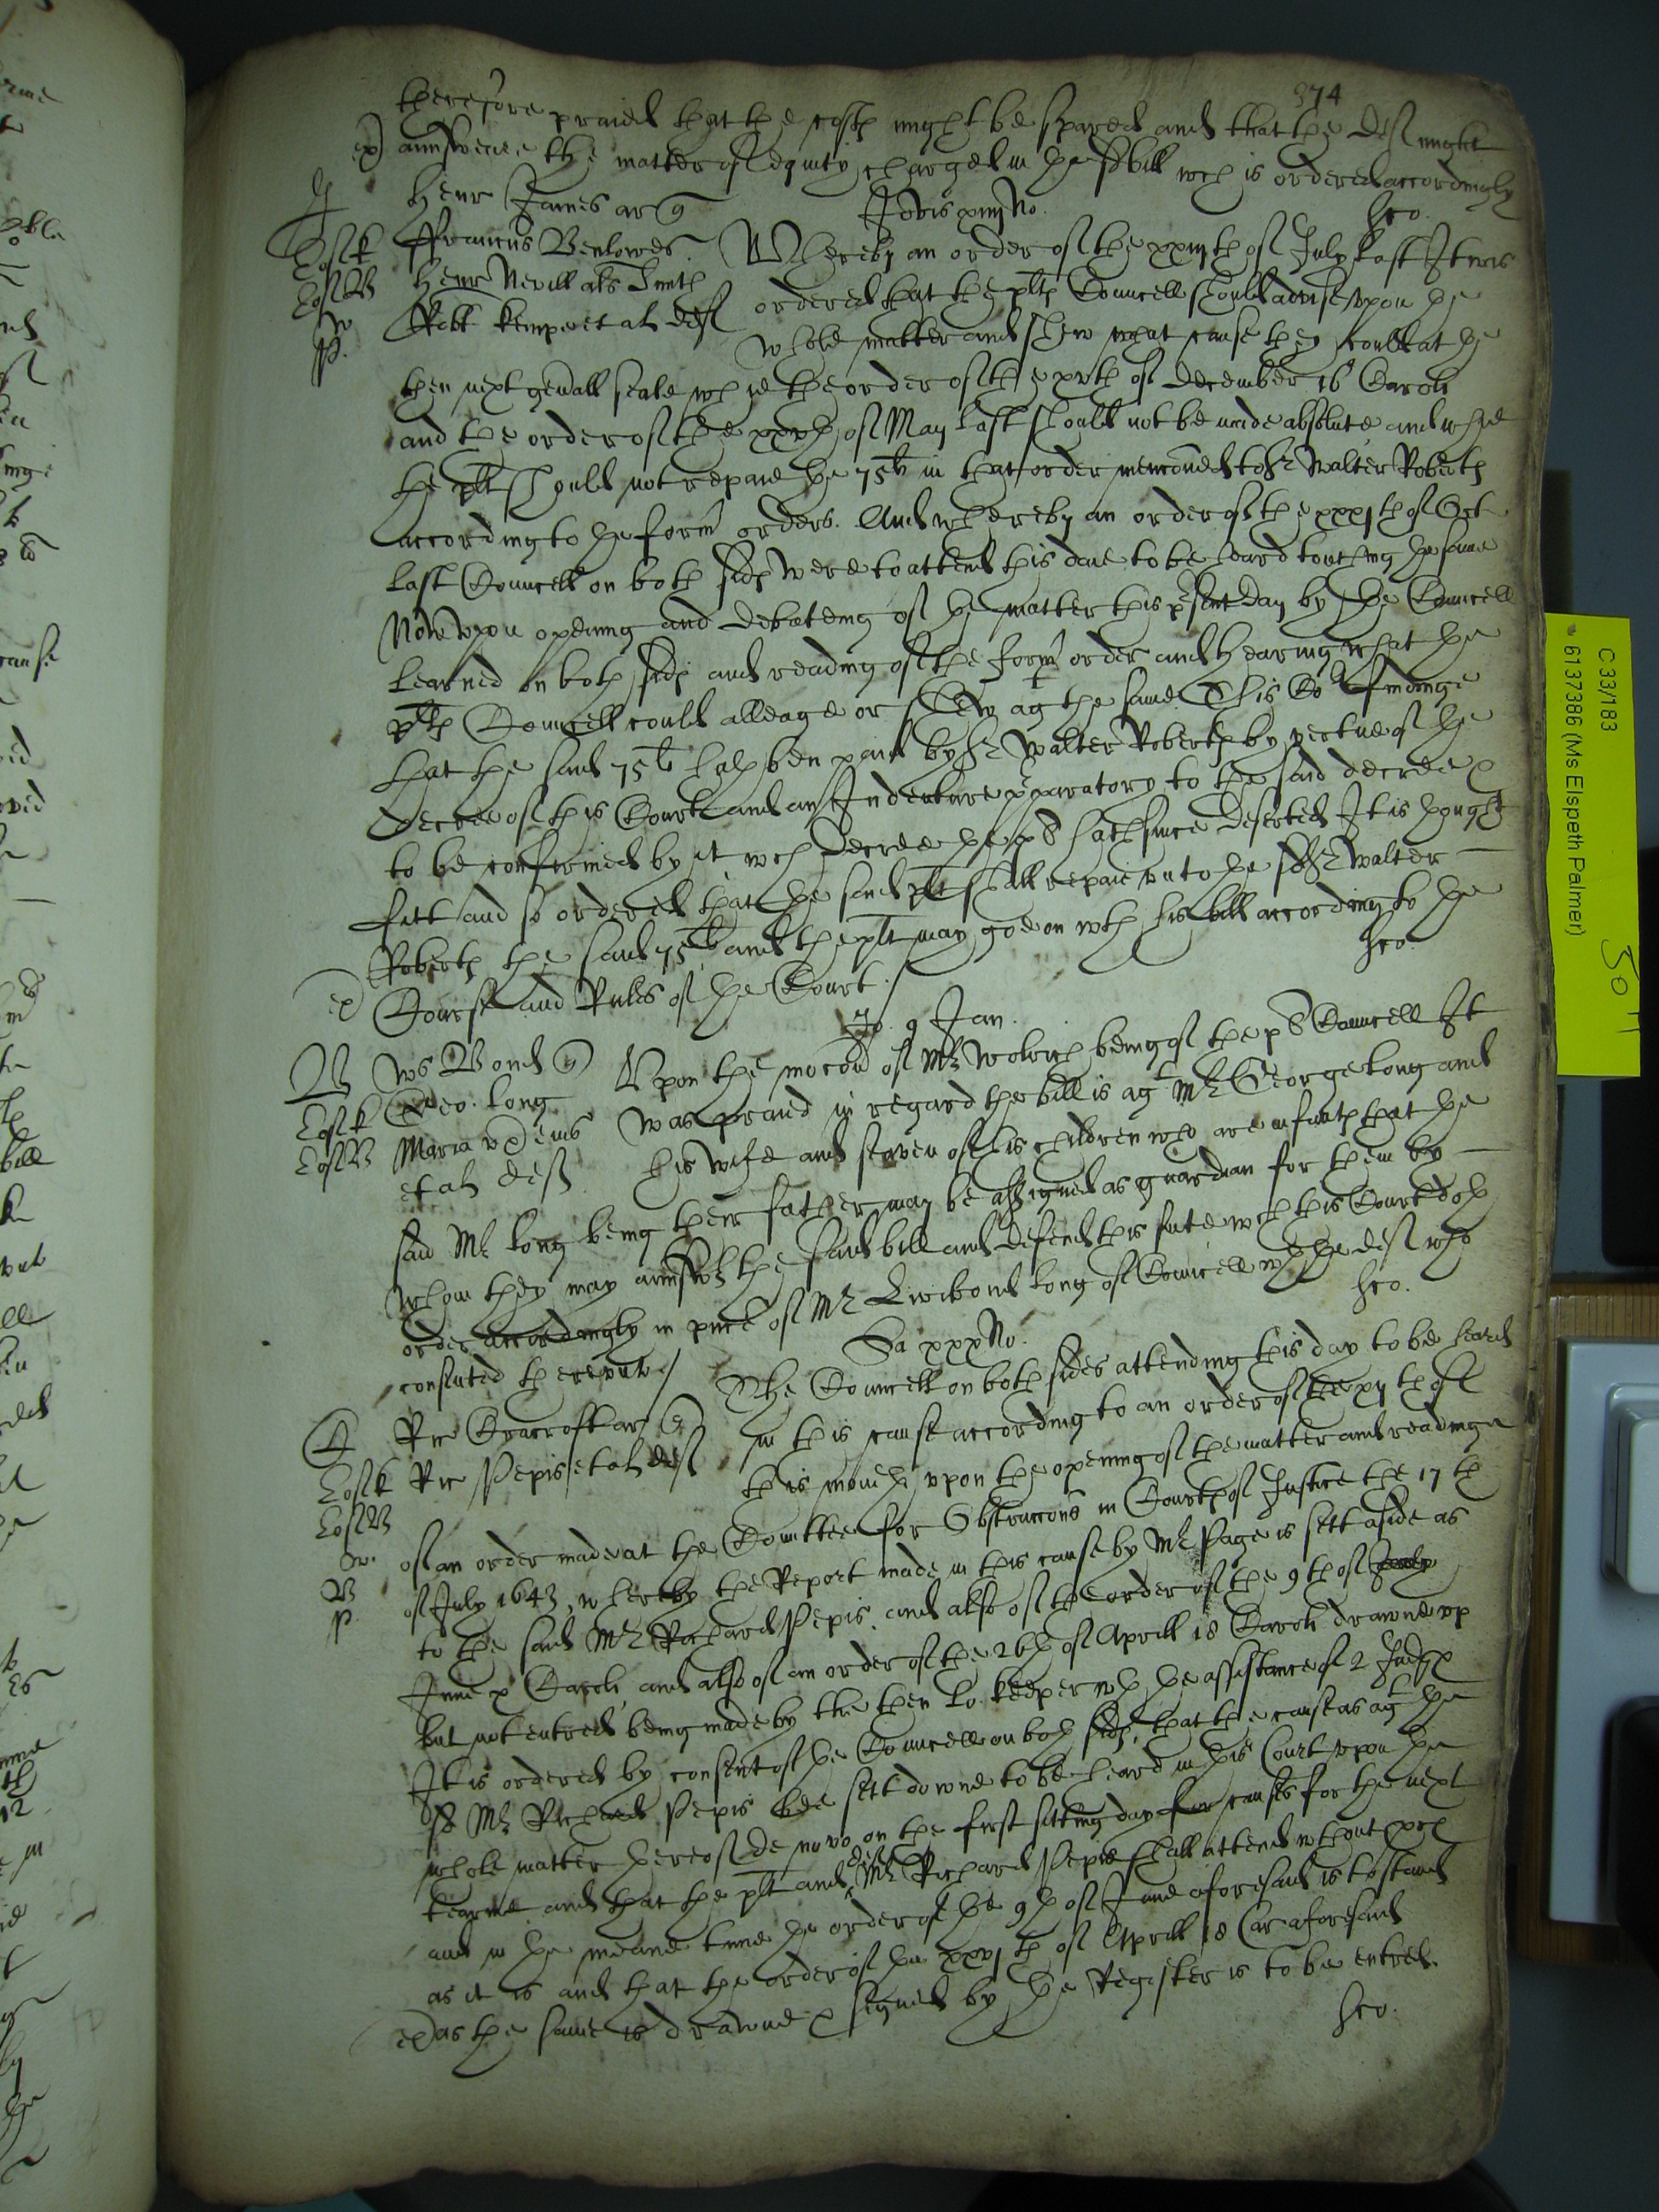 374
therefore praied that the costs might be spared and that the Def might
ex answere the matter of equity charged in the sd bill wch is ordered accordingly
Jovis xiiij No. hco.
Henr James ar q
Francus Benlowes Whereby an order of the xxiijth of July last It was
Henr Nevill als Smith ordered that the plts Councell should advise upon the
Robt Kempe et al def whole matter and shew what cause they could at the
P.
then next genall seale why the order of the xvth of December 16 Caroli
and the order of the xxvth of May last should not be made absolute and why
the plt should not repaie the 75li in that order menconed to Sr Walter Roberts
according to the form orders. And whereby an order of the xxxjth of Oct
last Councell on both sids were to attend this daie to be heard touching the same
Now upon opening and debateing of the matter this psent day by the Councell
learned on both sids and reading of the form order and hearing what the
plts Councell could alleage or shew agt the same This Cort findinge
that the said 75li hath ben paid by Sr Walter Roberts by vertue of the
decree of this Court and an Indenture pparatory to the said decree
to be confirmed by it wch decree the plt hath since deserted It is thought
fitt and so ordered that the said plt shall repaie unto the sd Sr Walter
Roberts the said 75li and the plt may goe on wth his bill according to the
ex Course and Rules of the Court. hco.
Jo. 9 Jan.
B Ws Bond q Upon the mocon of Mr Wolrich being of the plts Councell It
Geo. Long was praied in regard the bill is agt Mr George Long and
Maria ux eius his wife and seaven of his children who are infants that the
et al def
said Mr Long being their father may be assigned as guardian for them by
whom they may answer the said bill and defend this suite wch this Court doth
order accordingly in pnce of Mr Lisbone Long of Councell wth the def who
consented thereunto hco.
Sa xxx No.
C Ric Cracroft ar q The Councell on both sides attending this day to be heard
Ric Pepis et al def in this cause according to an order of the xijth of
this moneth upon the opening of the matter and reading
of an order made at the Comittee for Obstruccons in Courts of Justice the 17th
of July 1643, whereby the Report made in this cause by Mr Page is sett aside as
P.
to the said Mr Richard Pepis, and also of the order of the 9th of July
June x Caroli, and also of an order of the 26th of Aprill 18 Caroli drawne up
but not entred being made by the then Lo. Keeper wth the assistance of 2 Judgs
It is ordered by consent of the Councell on both sids, that the cause as agt the
sd Mr Richard Pepis bee sett downe to be heard in this Court upon the
whole matter thereof de novo on the first sitting day for causes for the next
tearme and that the plt and def Mr Richard Pepis shall attend without proces
and in the meane tyme the order of the 9th of June aforesaid is to stand
as it is and that the order of the xxvjth of Aprill 18 Car aforesaid
ex as the same is drawne & signed by the Register is to be entred.
hco.
C 33/183
6137386 (Ms Elspeth Palmer)